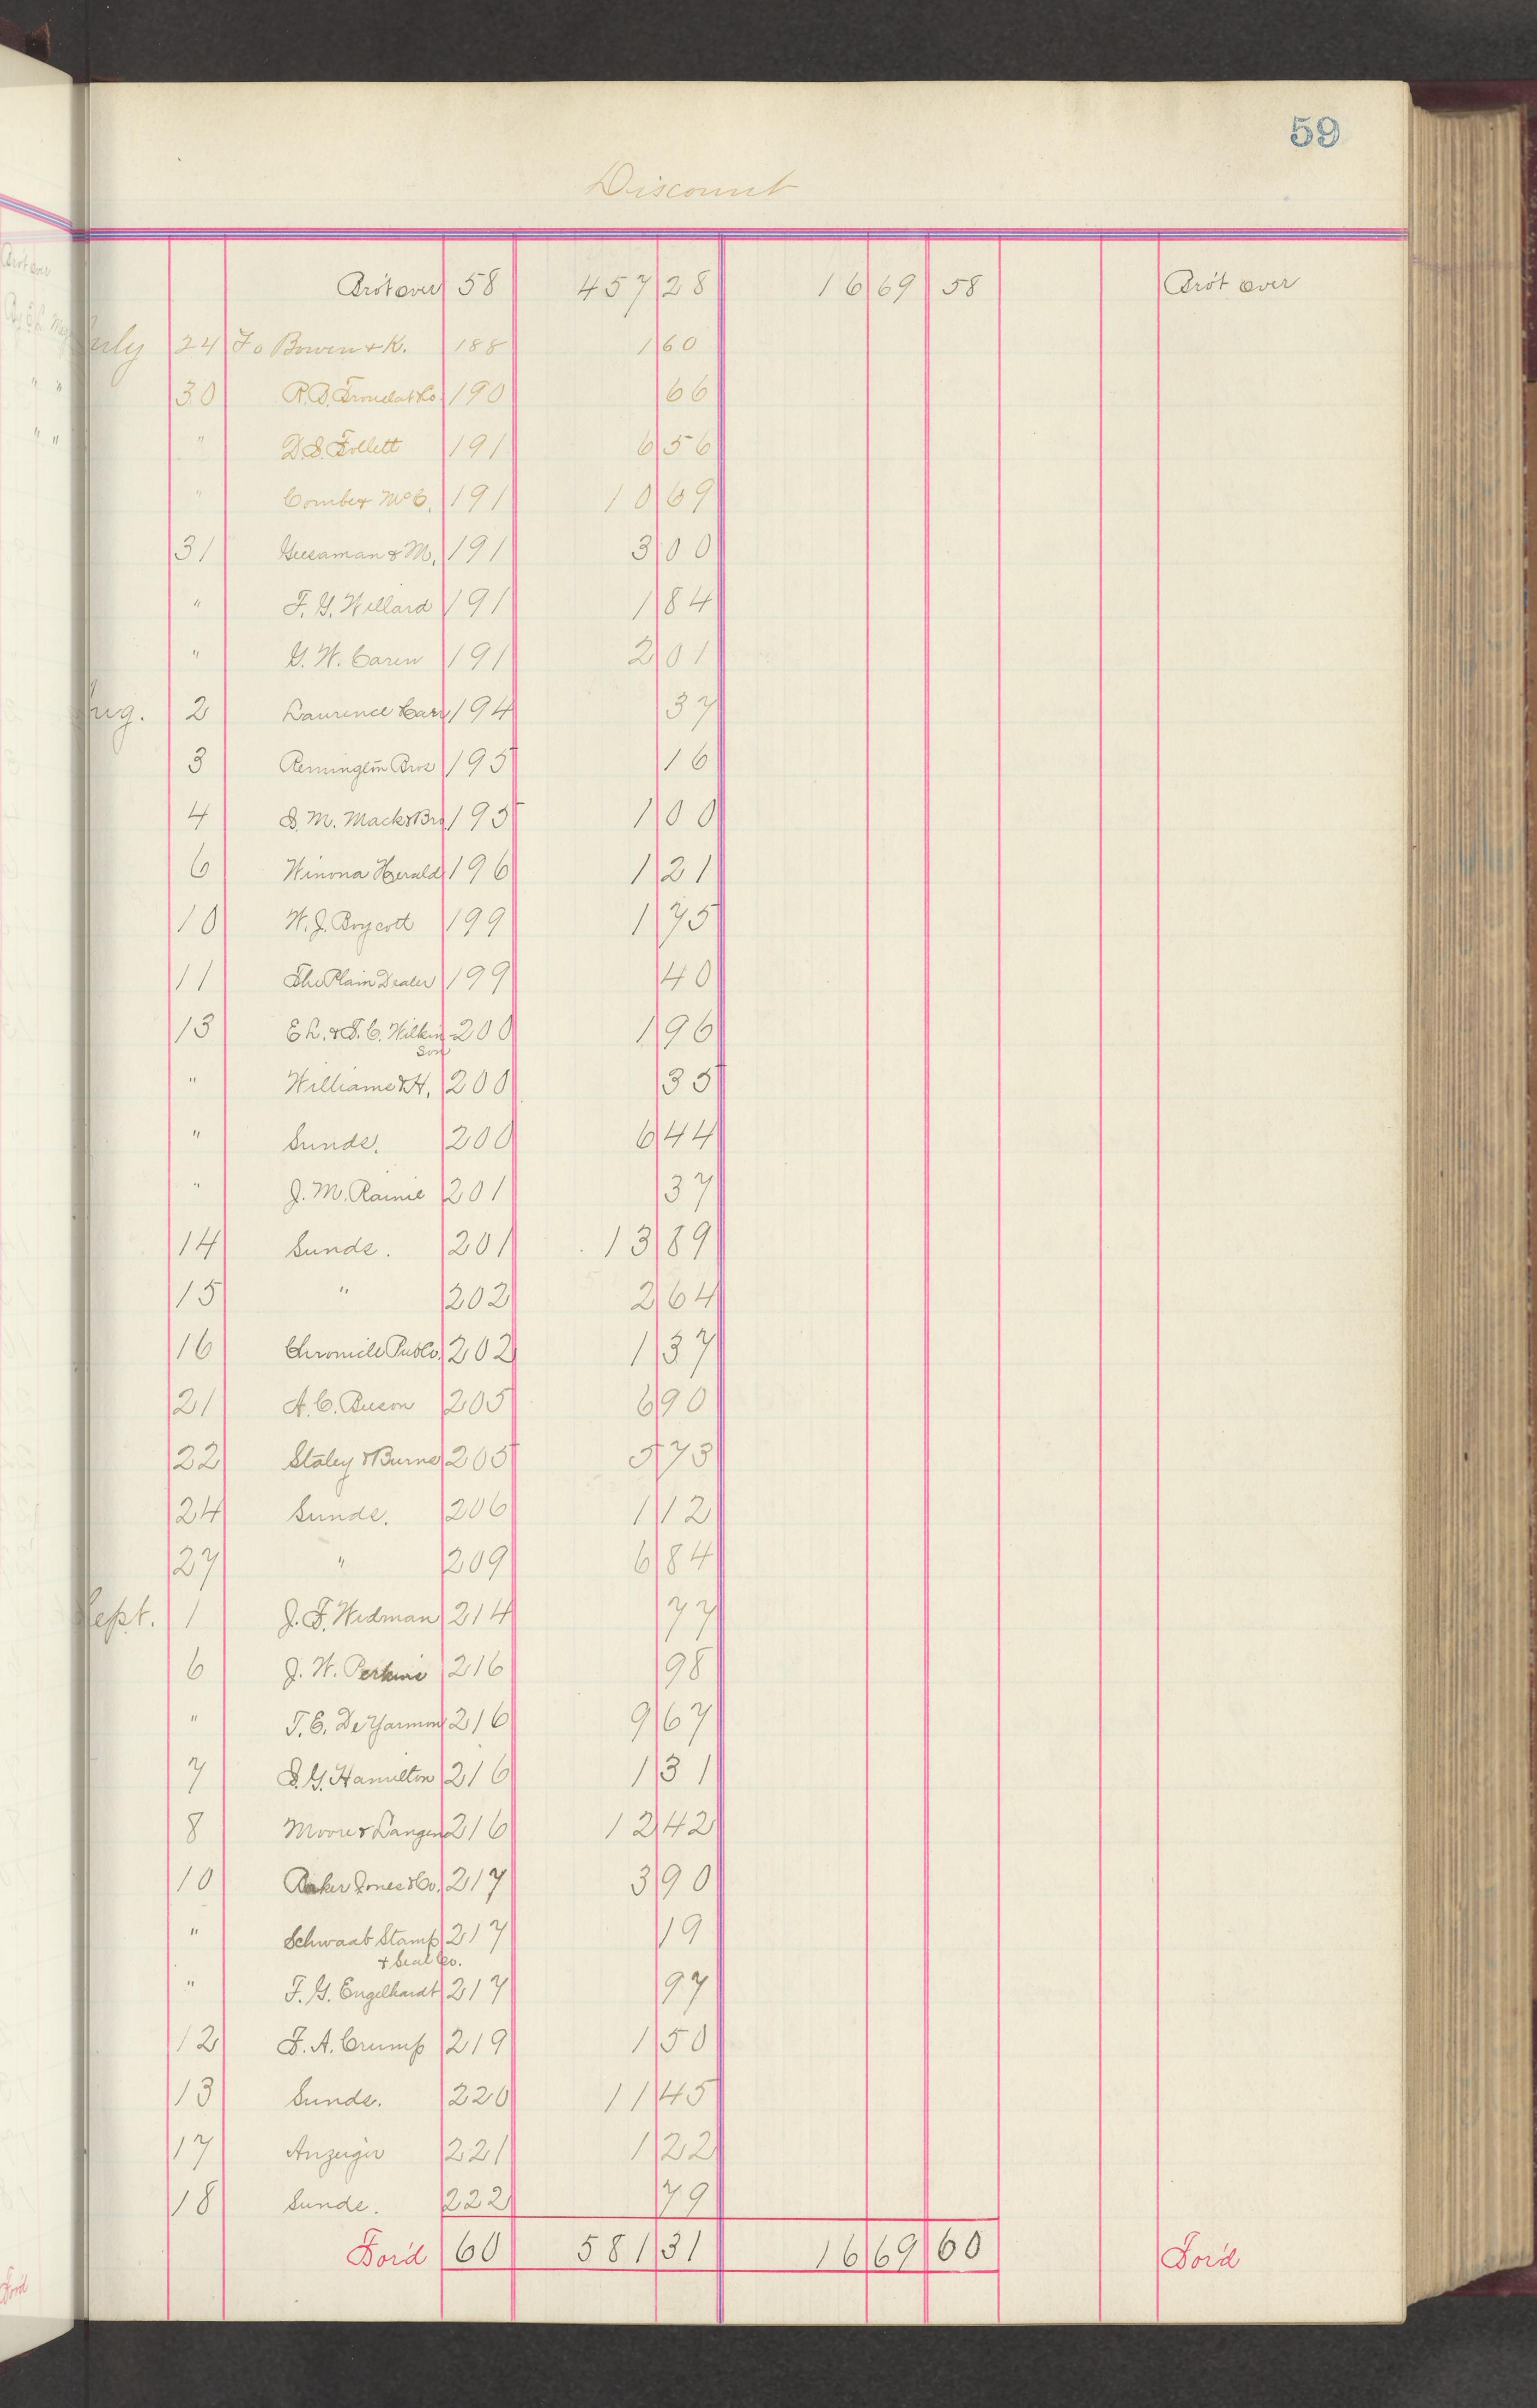 59
Discount
Bro't over 58 457 28 16 69 58 Bro't over
July 24 To Bowen & K. 188 1 60
30 R.D. & Co. 190 66
" D.S. Follett 191 6 56
" Combe & McC. 191 10 69
31 Geesaman & M. 191 3 00
" F. G. Willard 191 1 84
" G. W. Caren 191 2 01
Aug. 2 Laurence Carr 194 37
3 Remington Bros 195 16
4 S. M. Mack & Bro 195 1 00
6 Winona Herald 196 1 21
10 W. J. Boycott 199 1 75
11 The Plain Dealer 199 40
13 E L. & S. C. Wilkin- 200 1 96
son
" Williams & H. 200 35
" Sunds. 200 6 44
" J. M. Rainie 201 37
14 Sunds. 201 13 89
15 " 202 2 64
16 Chronicle Pub Co. 202 1 37
21 A. C. Buson 205 6 90
22 Staley & Burns 205 5 73
24 Sunds. 206 1 12
27 " 209 6 84
Sept. 1 J. F. Widman 214 77
6 J. W. Perkins 216 98
" T. E. De Yarmon 216 9 67
7 S. G. Hamilton 216 1 31
8 Moore & Langen 216 12 42
10 Baker Jones & Co. 217 3 90
" Schwaab Stamp 217 19
& Seal Co.
" F. G. Engelhardt 217 97
12 F. A. Crump 219 1 50
13 Sunds. 220 11 45
17 Anzeiger 221 1 22
18 Sunds. 222 79
For'd 60 581 31 16 69 60 For'd